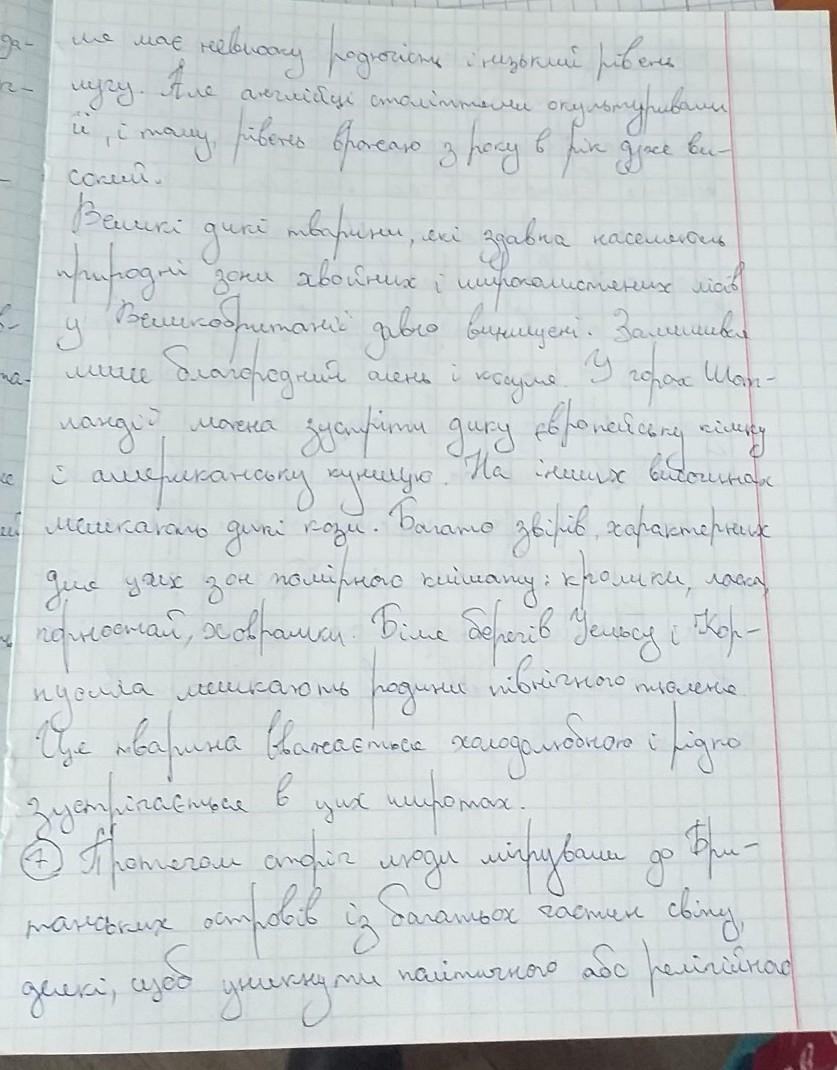 да-
ля має невисоку родючість і низький рівень
лугу. Але англійці століттями окультурювали
її, і тому, рівень врожаю з року в рік дуже ви-
сокий.
Великі дикі тварини, які здавна населяють
природні зони хвойних і широколистених лісів
у Великобританії давно винищені. Залишився
лише благородний олень і косуля. У горах Шот-
ландії можна зустріти дику європейську кішку
і американську куницю. На інших височинах
мешкають дикі кози. Багато звірів, характерних
для усіх зон помірного клімату: кролики, ласка,
горностай, ховрашки. Біля берегів Уельсу і Кор-
нуолла мешкають родини північного тюленя.
Ця тварина вважається холодолюбною і рідко
зустрічається в цих широтах.
7 Протягом сторіч люди мігрували до Бри-
танських островів із багатьох частин світу,
деякі, щоб уникнути політичного або релігійного